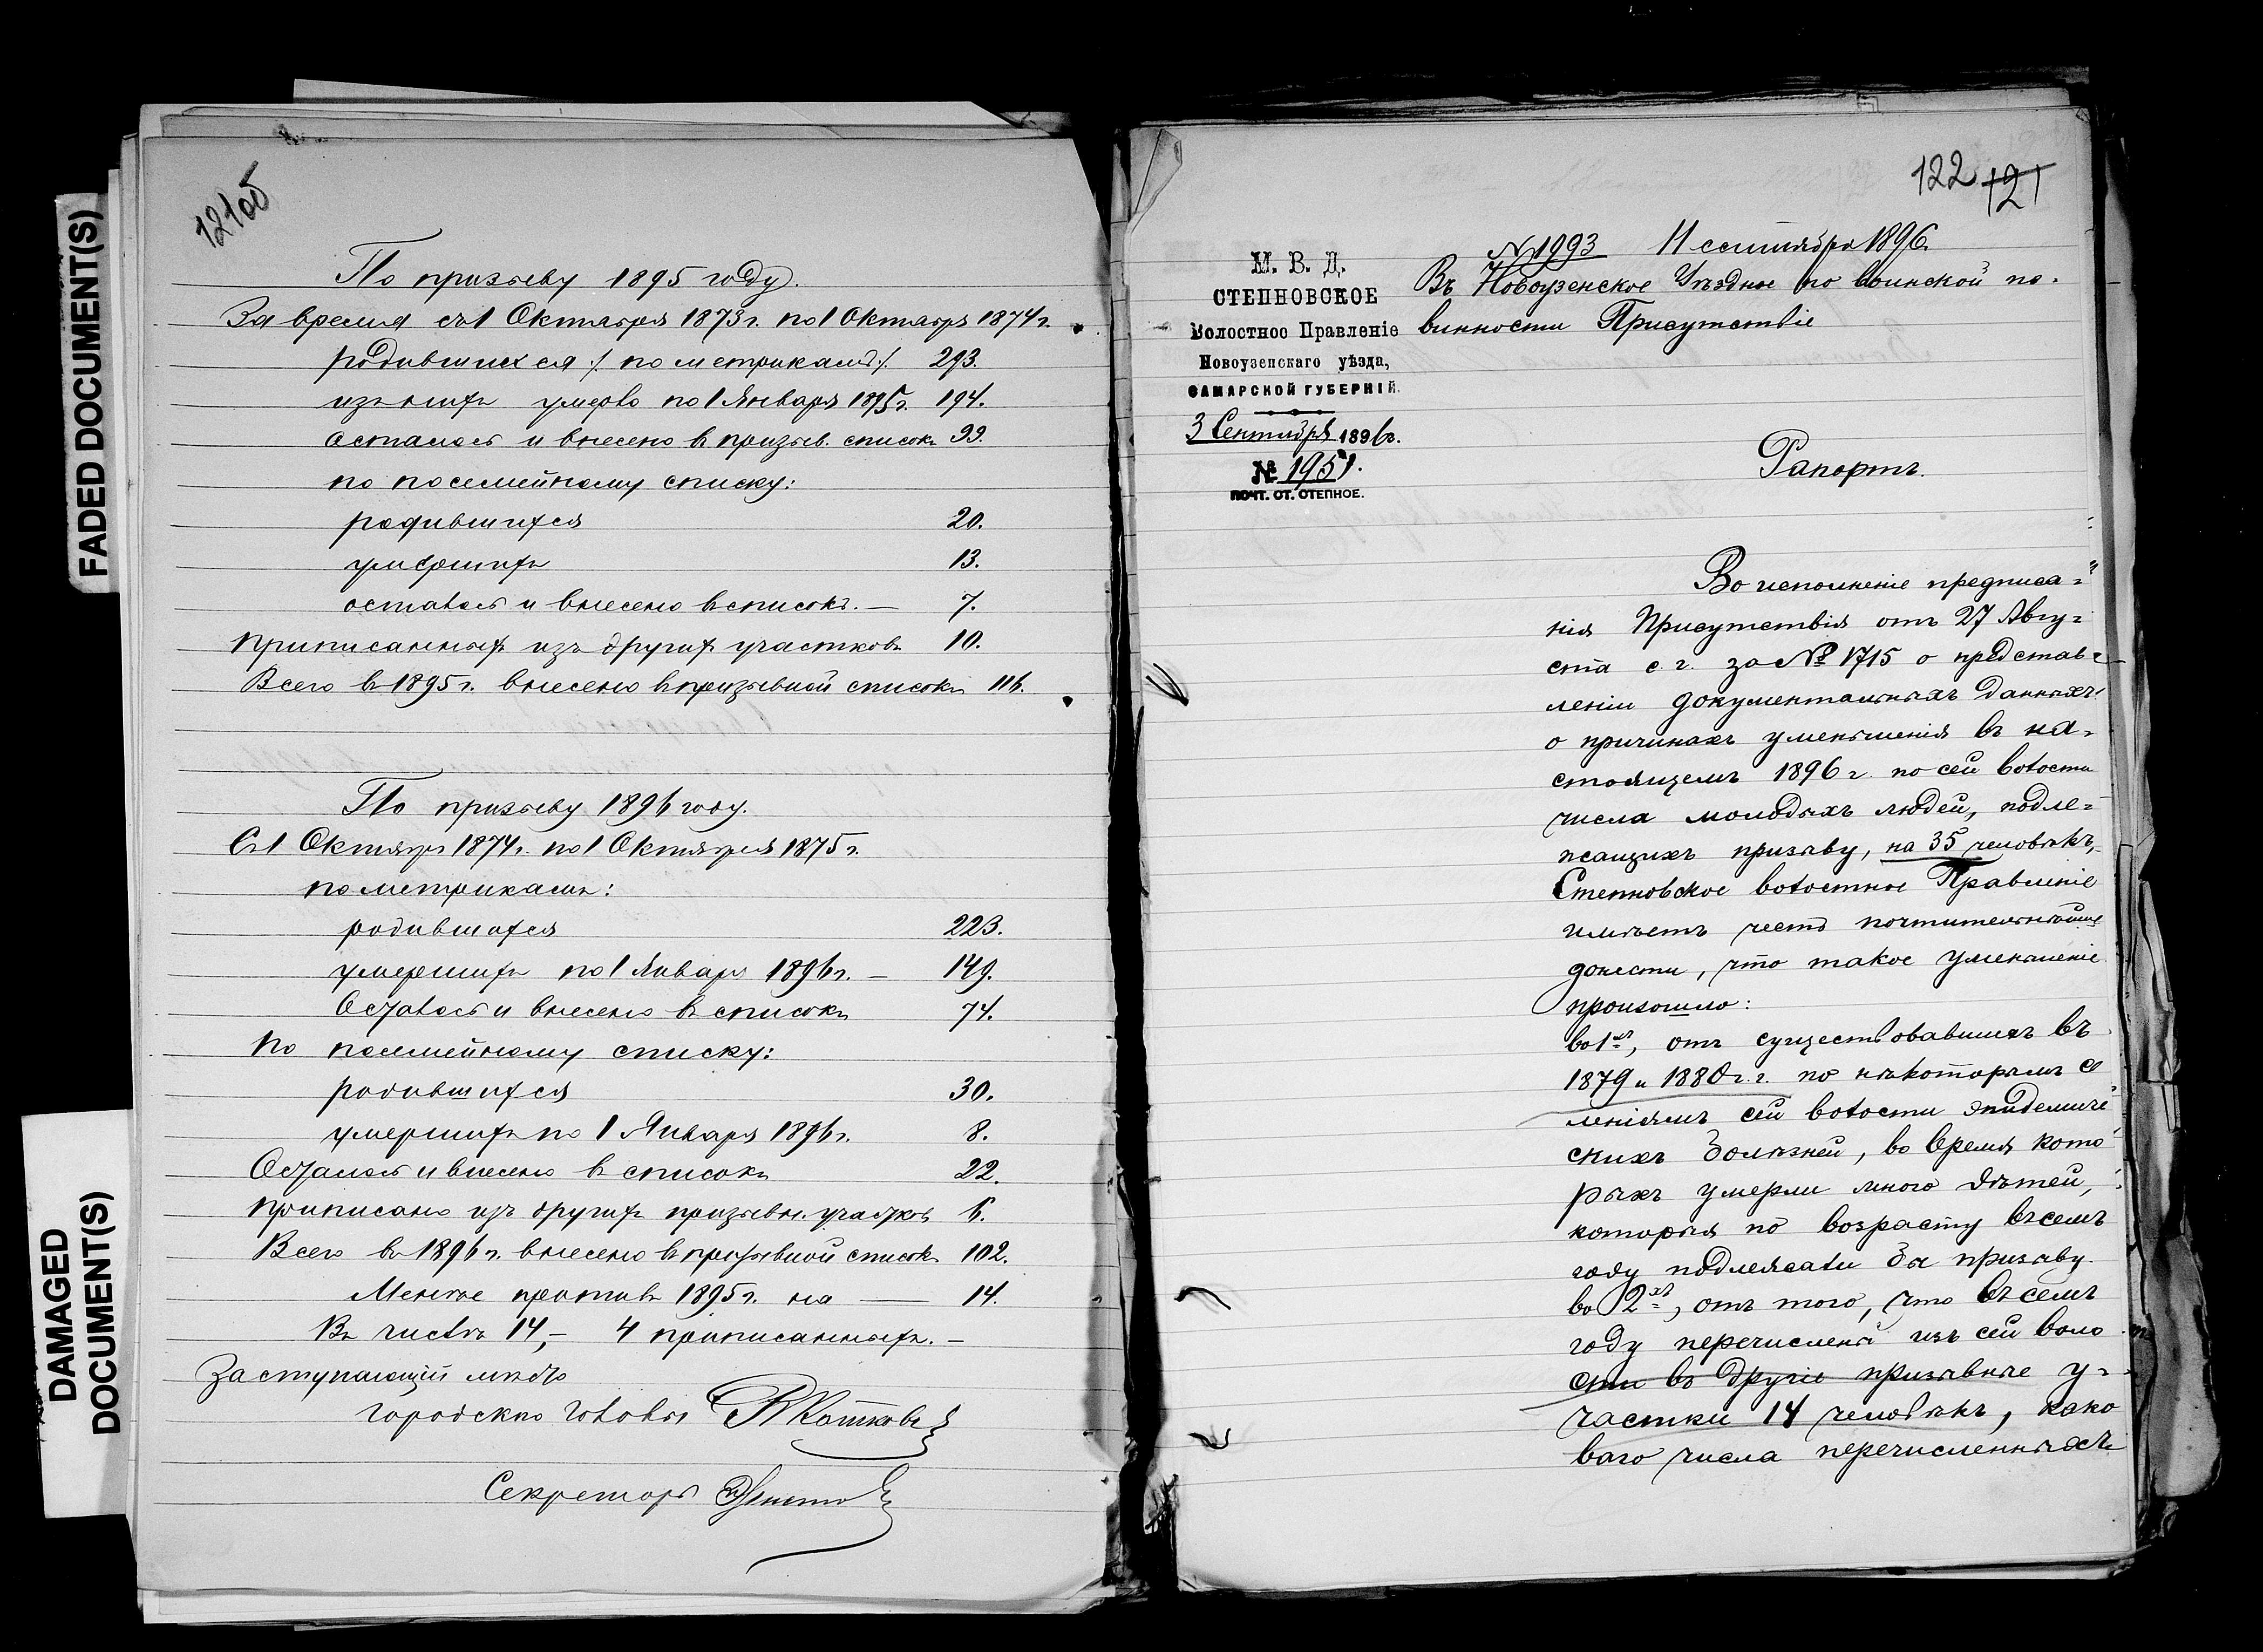 FADED DOCUMENT(S)
DAMAGED
DOCUMENT(S)
121об
По призыву 1895 году.
За время съ 1 Октября 1873 г. по 1 Октябрь 1874 г.
родившихся /: по метрикамъ :/ 293.
изъ нихъ умерло по 1 Января 1895 г. 194.
осталось и внесено въ призыв. списокъ 99.
по посемейному списку:
родившихся 20.
умершихъ 13.
осталось и внесено въ списокъ. — 7.
Приписанныхъ изъ другихъ участковъ 10.
Всего въ 1895 г. внесено въ призывной списокъ 116.
По призыву 1896 году.
Съ 1 Октября 1874 г. по 1 Октября 1875 г.
по метрикамъ:
родившихся 223.
умершихъ по 1 Января 1896 г. — 149.
Осталось и внесено въ списокъ 74.
По посемейному списку:
родившихся 30.
умершихъ по 1 Января 1896 г. 8.
Осталось и внесено въ списокъ 22.
Приписано изъ другихъ призывн. участков 6.
Всего въ 1896 г. внесено въ призывной списокъ 102.
Менѣе противъ 1895 г. на — 14.
Въ числѣ 14, — 4 приписанныхъ. —
Заступающій мѣсто
Городского Головы
Секретарь
122 121
№ 1993 11 сентября 1896
М. В. Д.
СТЕПНОВСКОЕ
Волостное Правленіе
Новоузенскаго уѣзда,
САМАРСКОЙ ГУБЕРНІЙ.
3 Сентября 1896 г.
№ 1951.
ПОЧТ. СТ. СТЕПНОЕ.
Въ Новоузенское Уѣздное по воинской по-
винности Присутствіе
Рапортъ.
Во исполненіе предписа-
нія Присутствія отъ 27 Авгу-
ста с. г. за № 1715 о представ-
леніи документальныхъ данныхъ
о причинахъ уменьшенія въ на-
стоящемъ 1896 г. по сей волости
числа молодыхъ людей, подле-
жащихъ призыву, на 35 человѣкъ,
Степновское волостное Правленіе
имѣетъ честь почтительнѣйше
донести, что такое уменьшеніе
произошло:
во 1хъ, отъ существовавшихъ въ
1879 и 1880 г.г. по нѣкоторымъ се
леніямъ сей волости эпидемиче
скихъ болѣзней, во время кото
рыхъ умерли много дѣтей,
которыя по возрасту въ семъ
году подлежали бы призыву.
во 2хъ, отъ того, что въ семъ
году перечислены изъ сей воло
сти въ другіе призывные у-
частки 14 человѣкъ, како
ваго числа перечисленныхъ